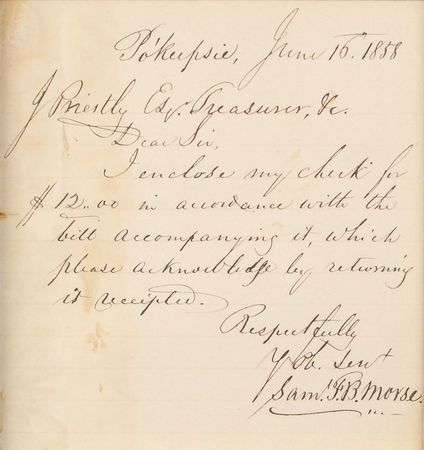 Po'keepsie, June 16th 1858
J Priestly Esq. Treasurer, &c.
Dear Sir,
I enclose my check for
$12..00 in accordance with the
bill accompanying it, which
please acknowledge by returning
it receipted.
Respectfully
Yr Ob. Servt
Saml. F. B. Morse.